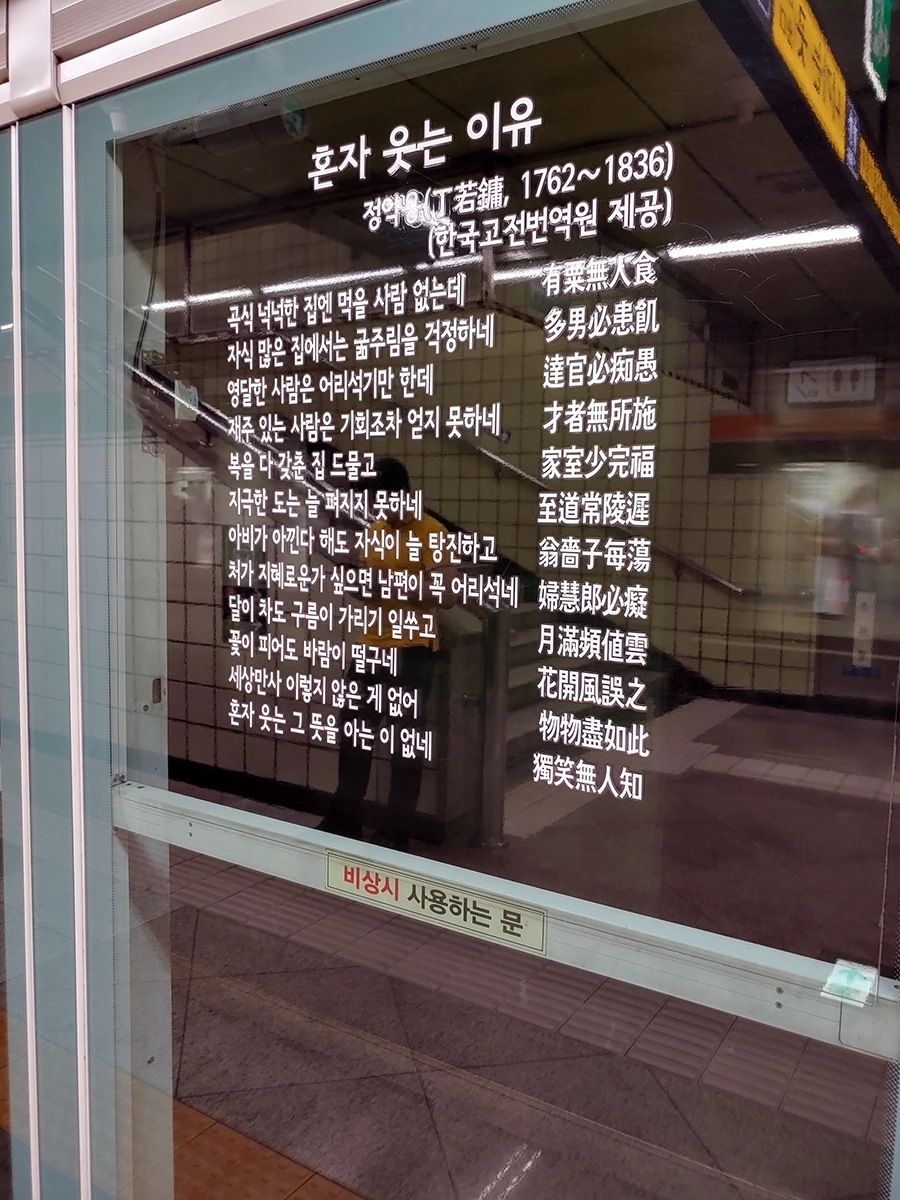 혼자 웃는 이유
정약용(丁若鏞, 1762~1836)
(한국고전번역원 제공)
곡식 넉넉한 집엔 먹을 사람 없는데
자식 많은 집에서는 굶주림을 걱정하네
영달한 사람은 어리석기만 한데
재주 있는 사람은 기회조차 얻지 못하네
복을 다 갖춘 집 드물고
지극한 도는 늘 펴지지 못하네
아비가 아낀다 해도 자식이 늘 탕진하고
처가 지혜로운가 싶으면 남편이 꼭 어리석네
달이 차도 구름이 가리기 일쑤고
꽃이 피어도 바람이 떨구네
세상만사 이렇지 않은 게 없어
혼자 웃는 그 뜻을 아는 이 없네
有粟無人食
多男必患飢
達官必痴愚
才者無所施
家室少完福
至道常陵遲
翁嗇子每蕩
婦慧郎必癡
月滿頻値雲
花開風誤之
物物盡如此
獨笑無人知
비상시 사용하는 문